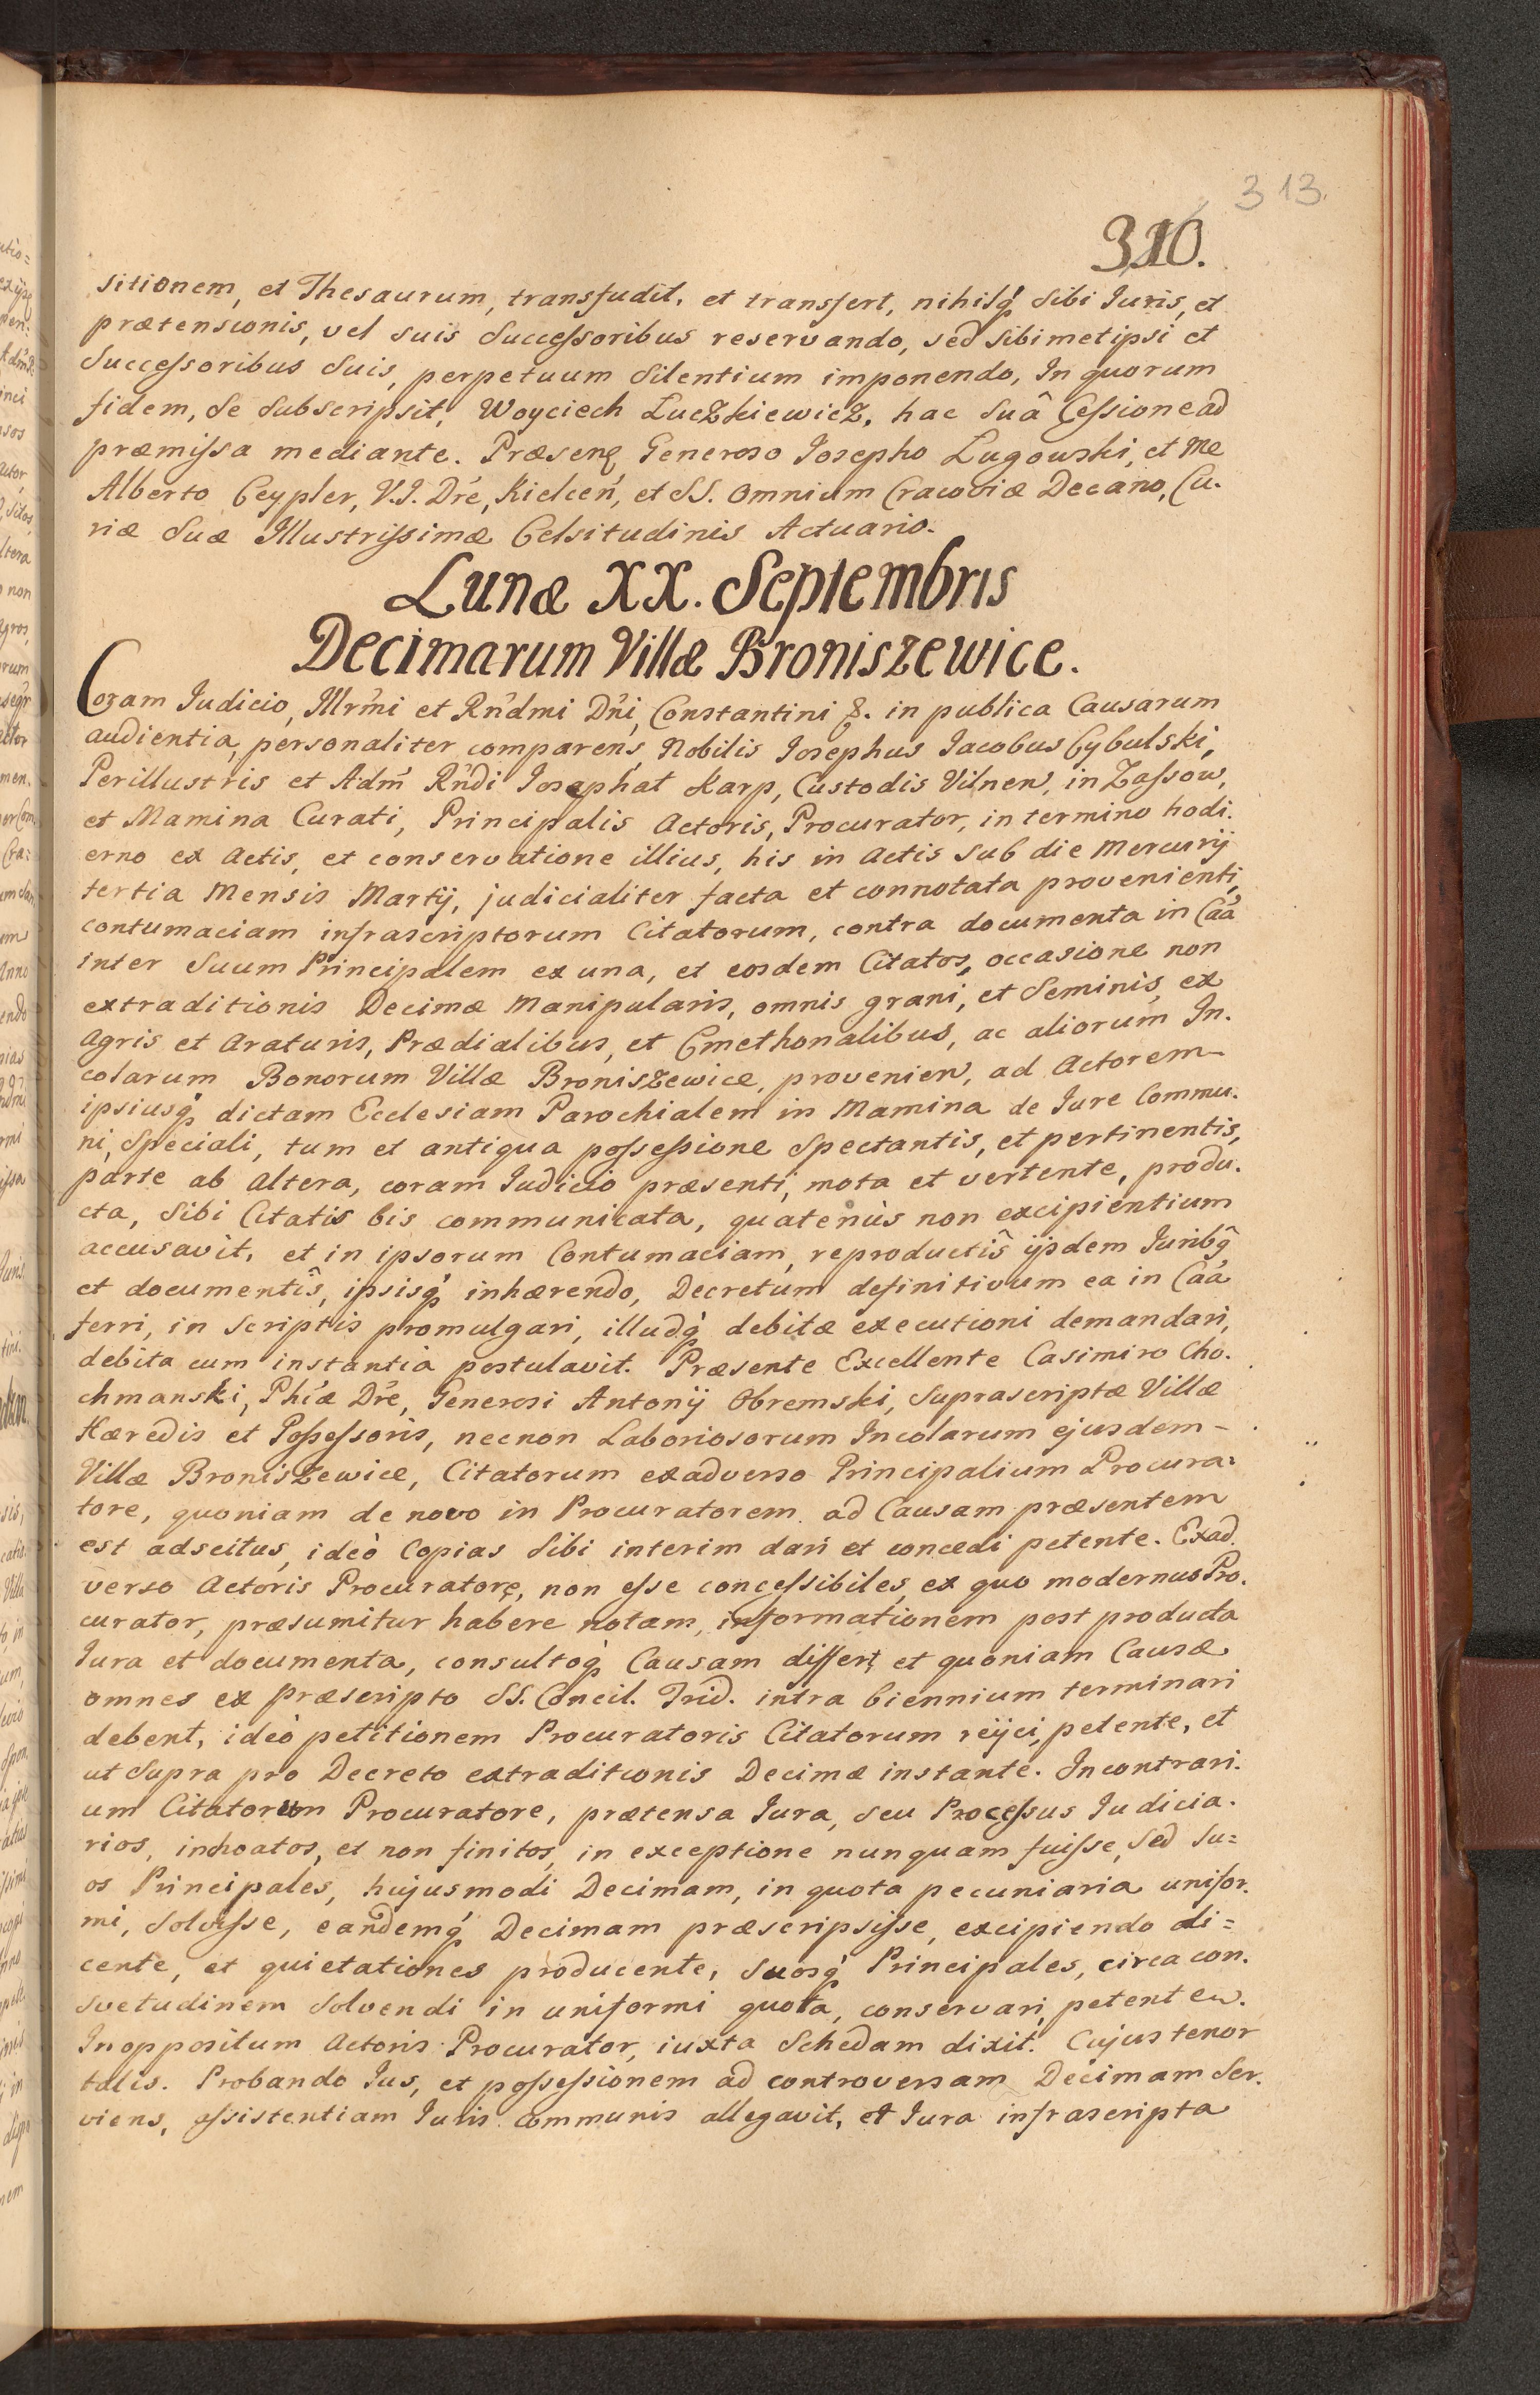 313.
310.
sitionem, et Thesaurum, transfudit, et transfert, nihilq́ sibi Iuris, et
prætensionis, vel suis Successoribus reservando, sed sibimetipsi et
Successoribus suis, perpetuum silentium imponendo, In quorum
fidem, se subscripsit, Woyciech LuczkiewicZ, hac suâ Cessione ad
præmissa mediante. Præsenꝗ Generoso Iosepho Lugowski, et Me
Alberto Ceypler, V.I. Dŕe, Kielceń, et SS. Omnium Cracoviæ Decano, Cu-
riæ suæ Illustrissimæ Celsitudinis Actuario.
Lunæ XX. Septembris
Decimarum Villæ Broniszewice.
Coram Iudicio, Illrḿi et Rńdmi Dńi, Constantini &. in publica Causarum
audientia, personaliter compareńs, Nobilis Iosephus Iacobus Cybulski,
Perillustris et Adḿ Rńdi Iosaphat Karp, Custodis Vilnen, in Zassow,
et Mamina Curati, Principalis Actoris, Procurator, in termino hodi-
erno ex Actis, et conservatione illius, his in Actis sub die Mercurij
tertia Mensis Martij, judicialiter facta et connotata provenienti,
contumaciam infrascriptorum Citatorum, contra documenta in Cáá
inter suum Principalem ex una, et eosdem Citatos, occasione non
extraditionis Decimæ Manipularis, omnis grani, et Seminis, ex
Agris et Araturis, Prædialibus, et Cmethonalibus, ac aliorum In-
colarum Bonorum Villæ Broniszewice, provenien, ad Actorem
ipsiusq́ dictam Ecclesiam Parochialem in Mamina de Iure Commu-
ni, Speciali, tum et antiqua possessione spectantis, et pertinentis,
parte ab altera, coram Iudicio præsenti, mota et vertente, produ-
cta, sibi Citatis bis communicata, quatenùs non excipientium
accusavit, et in ipsorum Contumaciam, reproductis ijsdem Iuribꝗ
et documentis, ipsisq́ inhærendo, Decretum definitivum ea in Cáá
ferri, in scriptis promulgari, illudq́ debitæ executioni demandari,
debita cum instantia postulavit. Præsente Excellente Casimiro Cho-
chmanski, Phíæ Dŕe, Generosi Antonij Obremski, Suprascriptæ Villæ
Hæredis et Possessoris, necnon Laboriosorum Incolarum ejusdem
Villæ Broniszewice, Citatorum exadverso Principalium Procura=
tore, quoniam de novo in Procuratorem ad Causam præsentem
est adscitus, ideò Copias sibi interim dari et concedi petente. Exad-
verso Actoris Procuratore, non esse concessibiles, ex quo modernus Pro-
curator, præsumitur habere notam, informationem post producta
Iura et documenta, consultoq́ Causam differt, et quoniam Causæ
omnes ex præscripto SS. Concil. Trid. intra biennium terminari
debent, ideò petitionem Procuratoris Citatorum reijci, petente, et
ut supra pro Decreto extraditionis Decimæ instante. Incontrari-
um Citatorum Procuratore, prætensa Iura, seu Processus Iudicia-
rios, inchoatos, et non finitos, in exceptione nunquam fuisse, sed su=
os Principales, hujusmodi Decimam, in quota pecuniaria unifor-
mi, solvisse, eandemq́ Decimam præscripsisse, excipiendo di=
cente, et quietationes producente, suosq́ Principales, circa con-
svetudinem solvendi in uniformi quota, conservari, petenten.
In oppositum Actoris Procurator, iuxta Schedam dixit. Cujus tenor
talis. Probando Ius, et possessionem ad controversam Decimam Ser-
viens, assistentiam Iuris communis allegavit, et Iura infrascripta